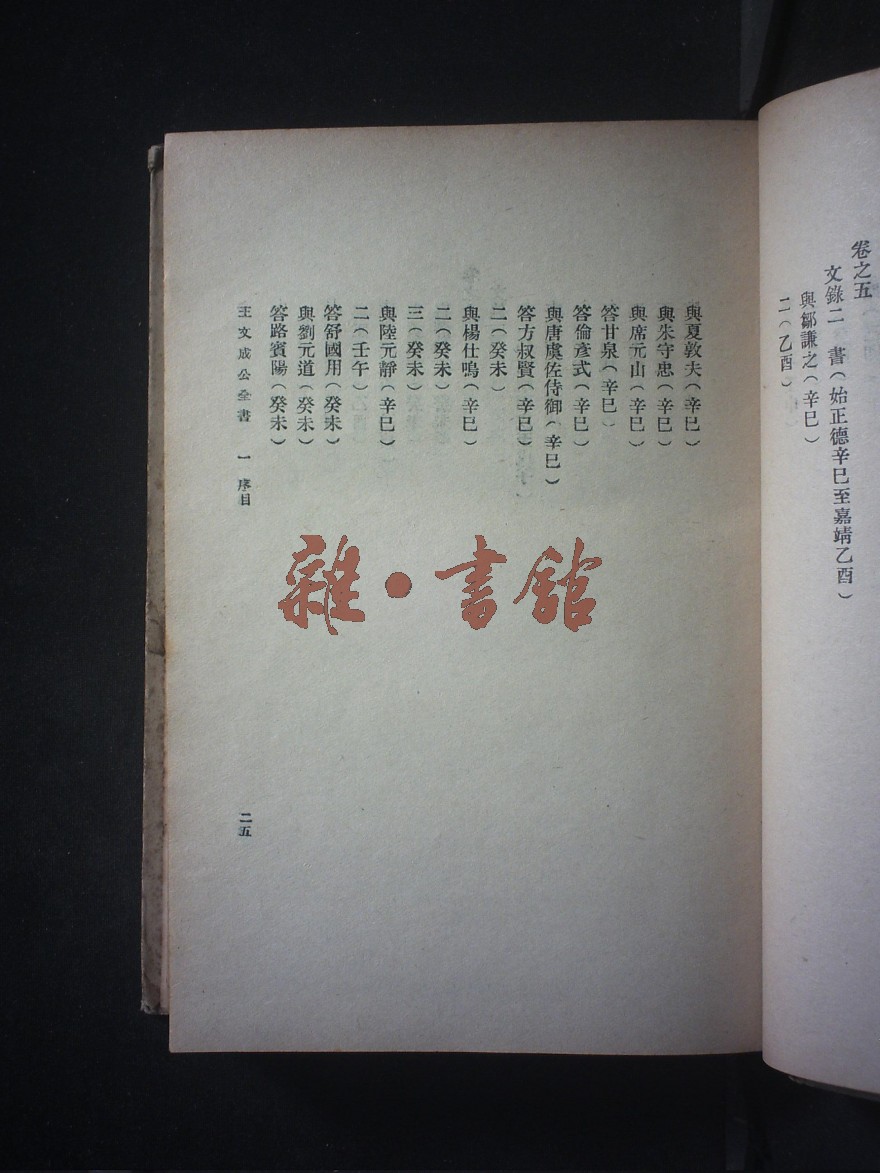 卷之五
文錄二 書(始正德辛巳至嘉靖乙酉)
與鄒謙之(辛巳)
二(乙酉)
與夏敦夫(辛巳)
與朱守忠(辛巳)
與席元山(辛巳)
答甘泉(辛巳)
答倫彥式(辛巳)
與唐虞佐侍御(辛巳)
答方叔賢(辛巳)
二(癸未)
與楊仕鳴(辛巳)
二(癸未)
三(癸未)
與陸元靜(辛巳)
二(壬午)
答舒國用(癸未)
與劉元道(癸未)
答路賓陽(癸未)
王文成公全書 一 序目
二五
雜•書館